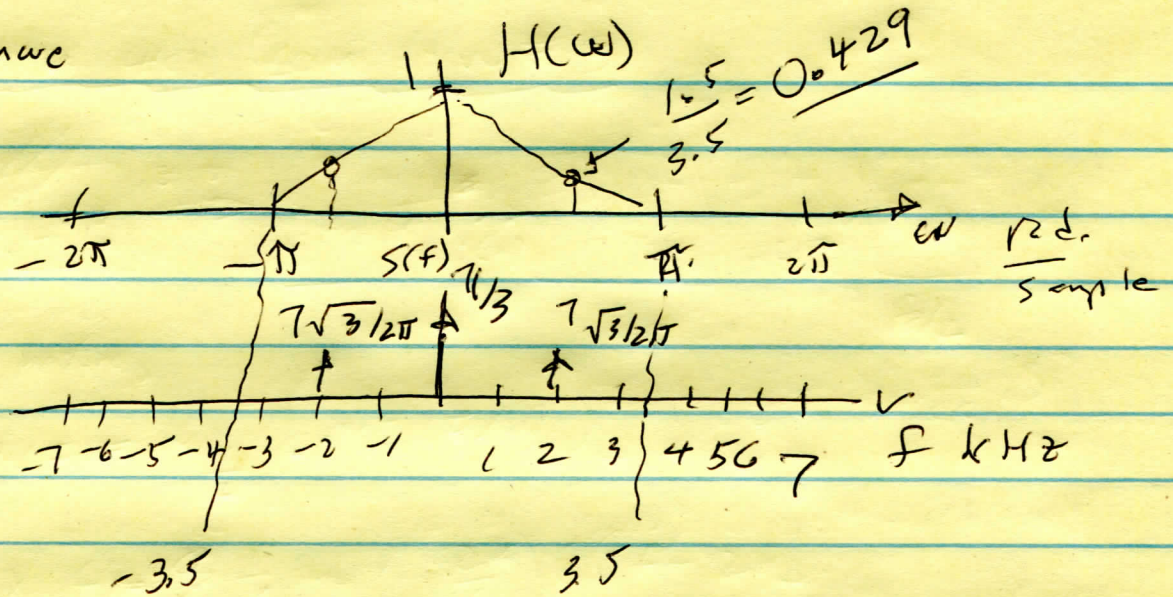 H(ω)
1
1.5/3.5 = 0.429
-2π -π π 2π ω rad. / sample
S(f)
7√3/2π 7/3 7√3/2π
-7 -6 -5 -4 -3 -2 -1 1 2 3 4 5 6 7 f kHz
-3.5 3.5